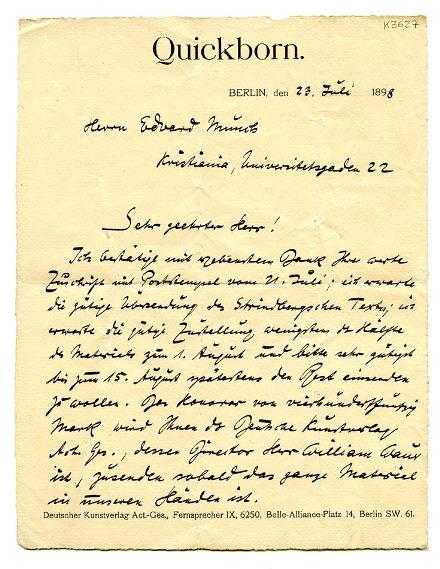 K3627
Quickborn.
BERLIN, den 23. Juli 1898
Herrn Edvard Munch
Kristiania, Universitetsgaden 22
Sehr geehrter Herr!
Ich bestätige mit ergebenstem Dank Ihre werte
Zuschrift mit Poststempel vom 21. Juli; ich erwarte
die gütige Übersendung des Strindbergschen Textes; ich
erwarte die gütige Zustellung wenigstens der Hälfte
des Materiels zum 1. August und bitte sehr gütigst
bis zum 15. August spätestens den Rest einsenden
zu wollen. Das Honorar von vierhundertfünfzig
Mark wird Ihnen der Deutsche Kunstverlag
Act. Ges., dessen Director Herr William
ist, zusenden sobald das ganze Materiel
in unseren Händen ist.
Deutscher Kunstverlag Act.-Ges., Fernsprecher IX, 6250, Belle-Alliance-Platz 14, Berlin SW. 61.